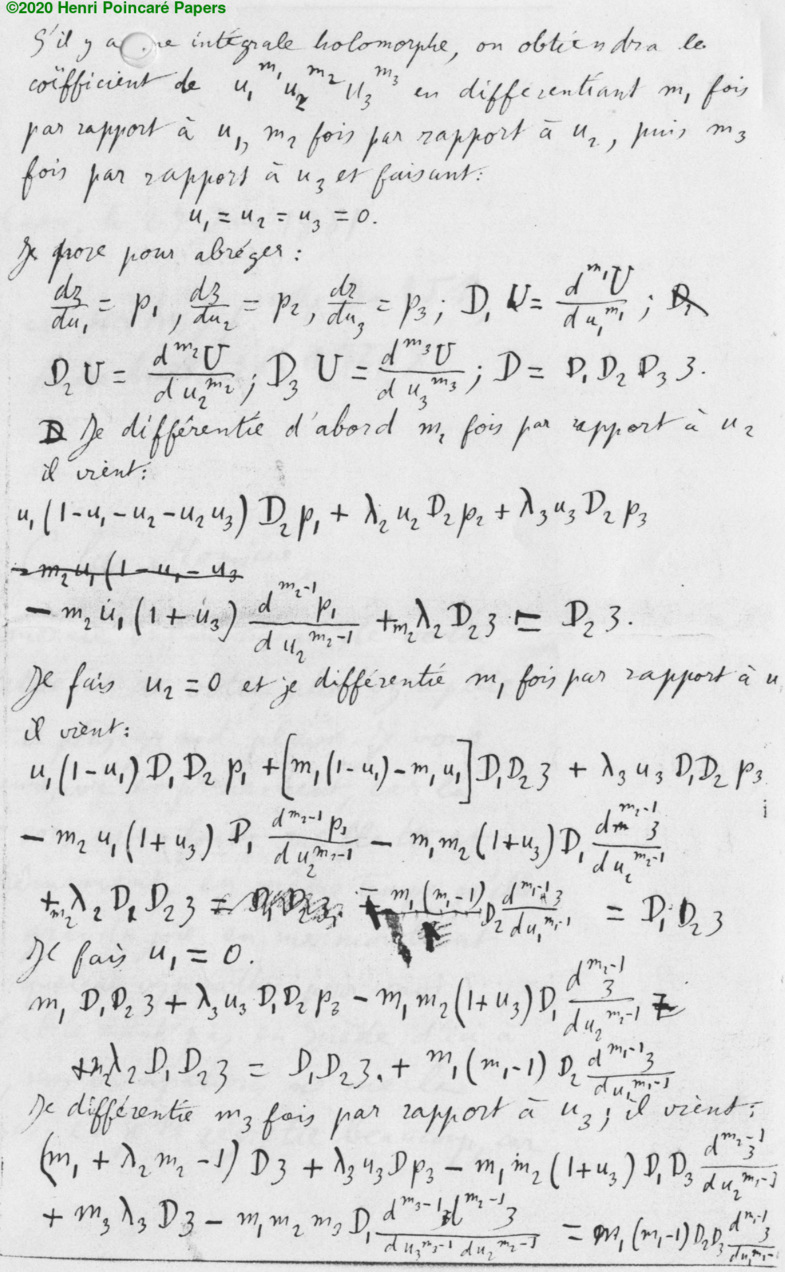 ©2020 Henri Poincaré Papers
S'il y a une intégrale holomorphe, on obtiendra le
coëfficient de u₁^m₁ u₂^m₂ u₃^m₃ en différentiant m₁ fois
par rapport à u₁, m₂ fois par rapport à u₂, puis m₃
fois par rapport à u₃ et faisant:
u₁ = u₂ = u₃ = 0.
Je pose pour abréger:
dz/du₁ = p₁, dz/du₂ = p₂, dz/du₃ = p₃; D₁ U = d^m₁ U/du₁^m₁;
D₂ U = d^m₂ U/du₂^m₂; D₃ U = d^m₃ U/du₃^m₃; D = D₁ D₂ D₃ z.
Je différentie d'abord m₂ fois par rapport à u₂
il vient:
u₁(1-u₁-u₂-u₂u₃) D₂p₁ + λ₂u₂D₂p₂ + λ₃u₃D₂p₃
- m₂u₁(1-u₁-u₃
- m₂u₁(1+u₃) d^(m₂-1) p₁/du₂^(m₂-1) + m₂λ₂D₂z = D₂z.
Je fais u₂ = 0 et je différentie m₁ fois par rapport à u
il vient:
u₁(1-u₁) D₁D₂p₁ + [m₁(1-u₁) - m₁u₁] D₁D₂z + λ₃u₃D₁D₂p₃
- m₂u₁(1+u₃) D₁ d^(m₂-1) p₁/du₂^(m₂-1) - m₁m₂(1+u₃) D₁ d^(m₂-1) z/du₂^(m₂-1)
+ m₂λ₂D₁D₂z - m₁(m₁-1) D₂ d^(m₁-1) z/du₁^(m₁-1) = D₁D₂z
Je fais u₁ = 0.
m₁D₁D₂z + λ₃u₃D₁D₂p₃ - m₁m₂(1+u₃) D₁ d^(m₂-1) z/du₂^(m₂-1)
+ m₂λ₂D₁D₂z = D₁D₂z + m₁(m₁-1) D₂ d^(m₁-1) z/du₁^(m₁-1)
Je différentie m₃ fois par rapport à u₃; il vient:
(m₁ + λ₂m₂ - 1) Dz + λ₃u₃Dp₃ - m₁m₂(1+u₃) D₁D₃ d^(m₂-1) z/du₂^(m₂-1)
+ m₃λ₃Dz - m₁m₂m₃D₁ d^(m₃-1) d^(m₂-1) z/du₃^(m₃-1) du₂^(m₂-1) = m₁(m₁-1) D₂D₃ d^(m₁-1) z/du₁^(m₁-1)